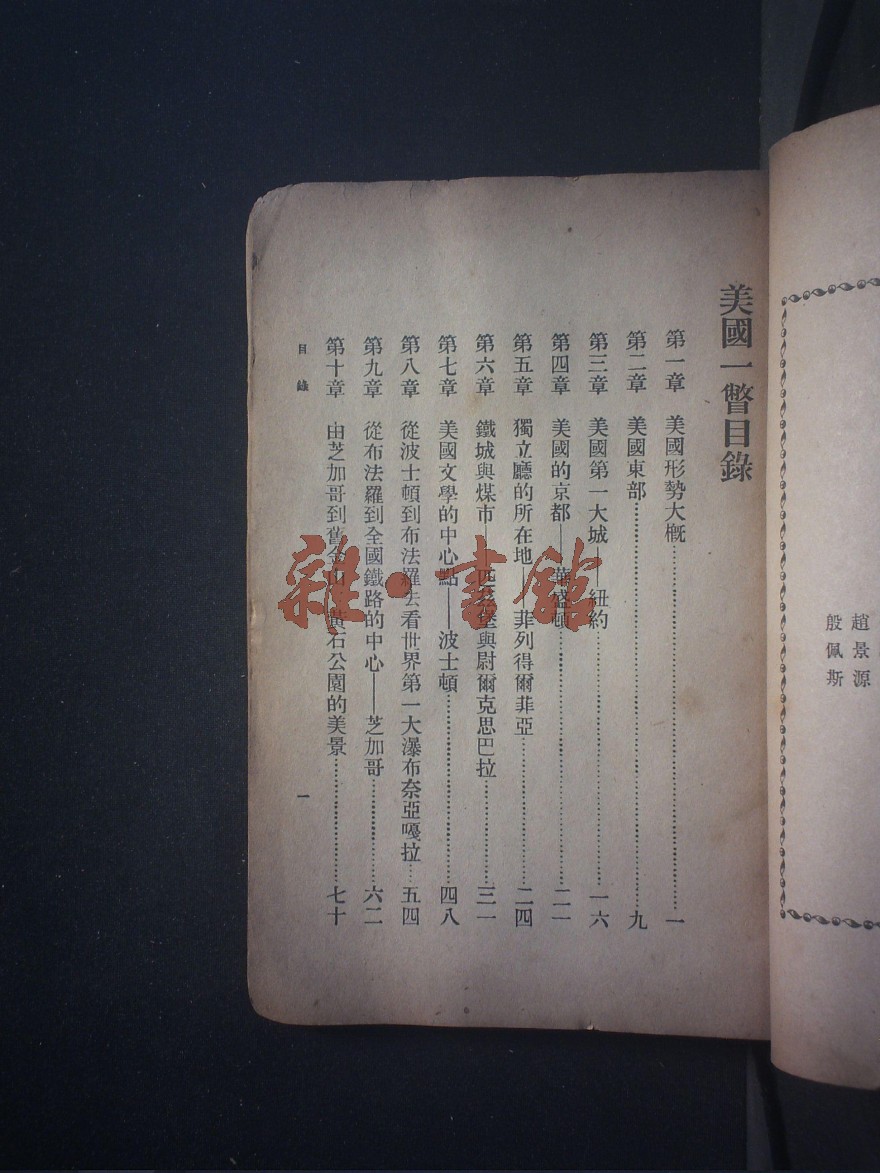 趙景源
殷佩斯
美國一瞥目錄
第一章 美國形勢大概……一
第二章 美國東部……九
第三章 美國第一大城——紐約……一六
第四章 美國的京都——華盛頓……二一
第五章 獨立廳的所在地——菲列得爾菲亞……二四
第六章 鐵城與煤市——匹茲堡與尉爾克思巴拉……三一
第七章 美國文學的中心點——波士頓……四八
第八章 從波士頓到布法羅去看世界第一大瀑布奈亞嘎拉……五四
第九章 從布法羅到全國鐵路的中心——芝加哥……六二
第十章 由芝加哥到舊金山 黃石公園的美景……七十
目錄
一
雜·書館